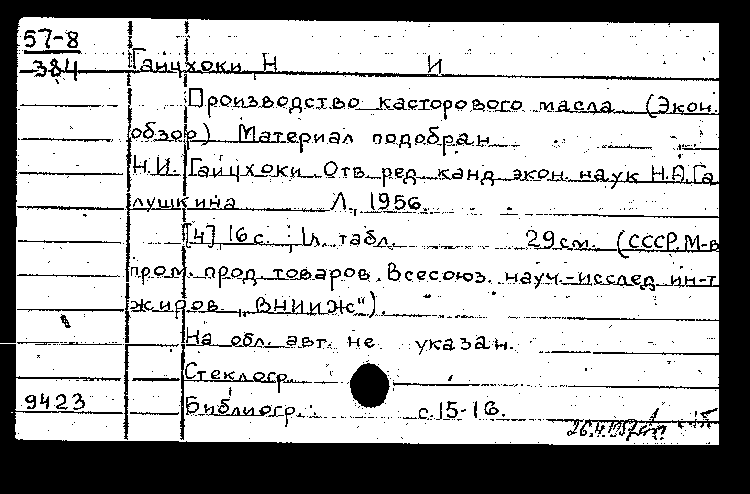 57-8
384 Гайцхоки, Н И
Производство касторового масла (Экон.
обзор) Материал подобран
Н.И. Гайцхоки. Отв. ред. канд. экон. наук Н.А. Га
лушкина Л., 1956.
[4], 16 с.; 1 л. табл. 29 см. (СССР. М-в
пром. прод. товаров. Всесоюз. науч.-исслед. ин-т
жиров „ВНИИЖ").
На обл. авт. не указан.
Стеклогр.
9423 Библиогр.: с. 15-16.